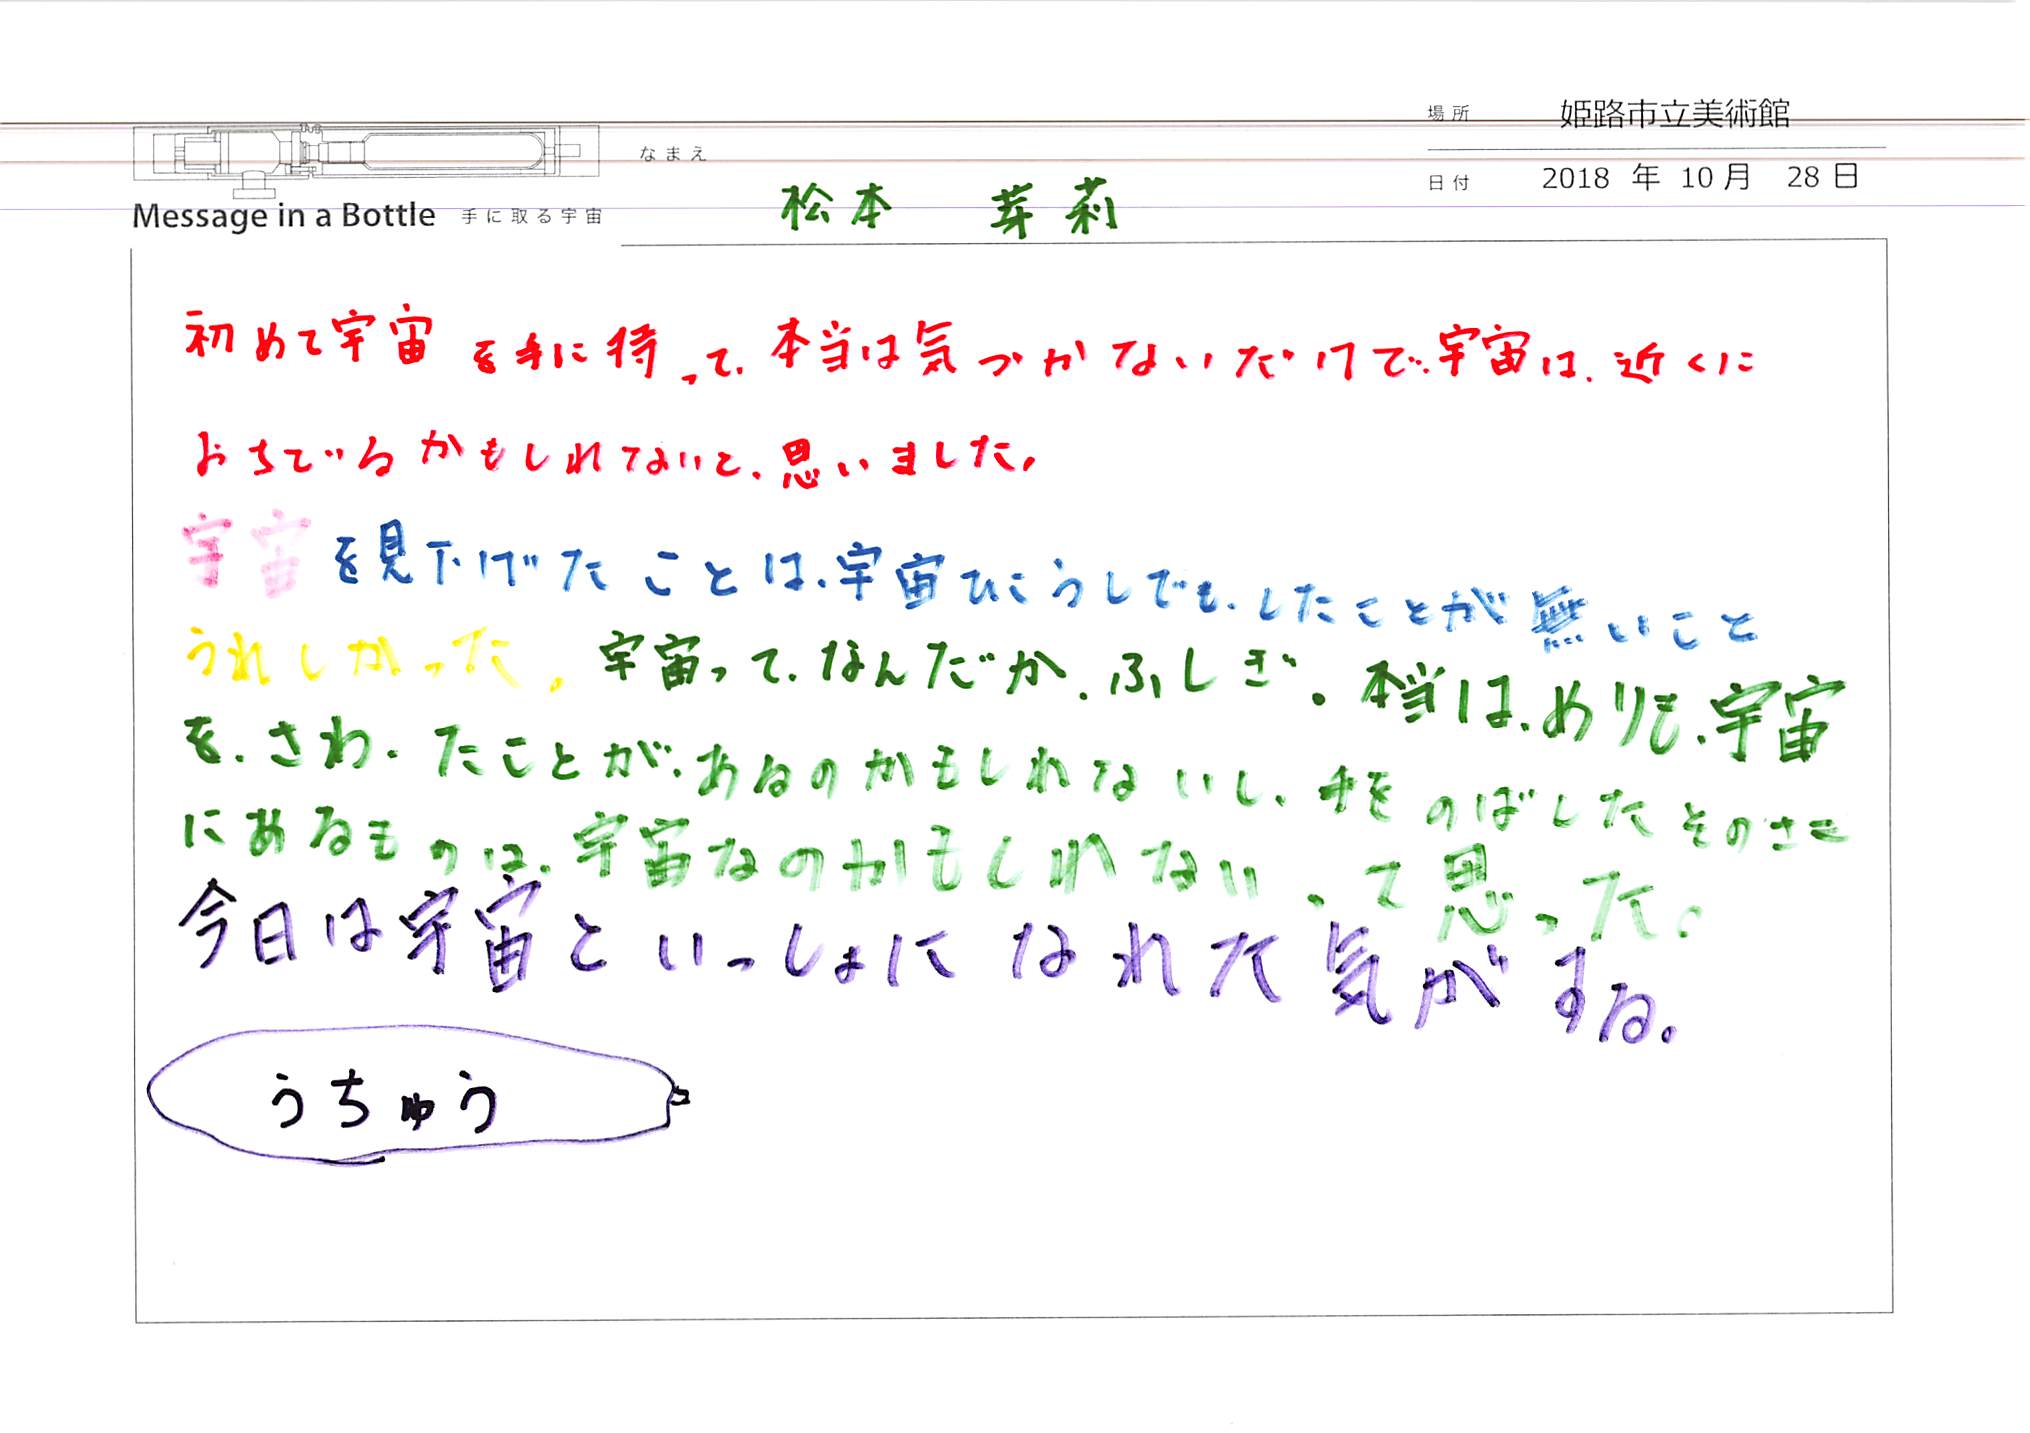 場所 姫路市立美術館
なまえ
日付 2018 年 10 月 28 日
Message in a Bottle 手に取る宇宙
松本 芽莉
初めて宇宙を手に待って、本当は気づかないだけで、宇宙は、近くに
おちでいるかもしれないと、思いました。
宇宙を見下げたことは、宇宙ひこうしでも、したことが無いこと
うれしかった。宇宙って、なんだか、ふしぎ。本当は、めりも、宇宙
を、さわったことが、あるのかもしれないし、手をのばしたそのさき
にあるものは、宇宙なのかもしれない、って思った。
今日は宇宙といっしょになれた気がする。
うちゅう